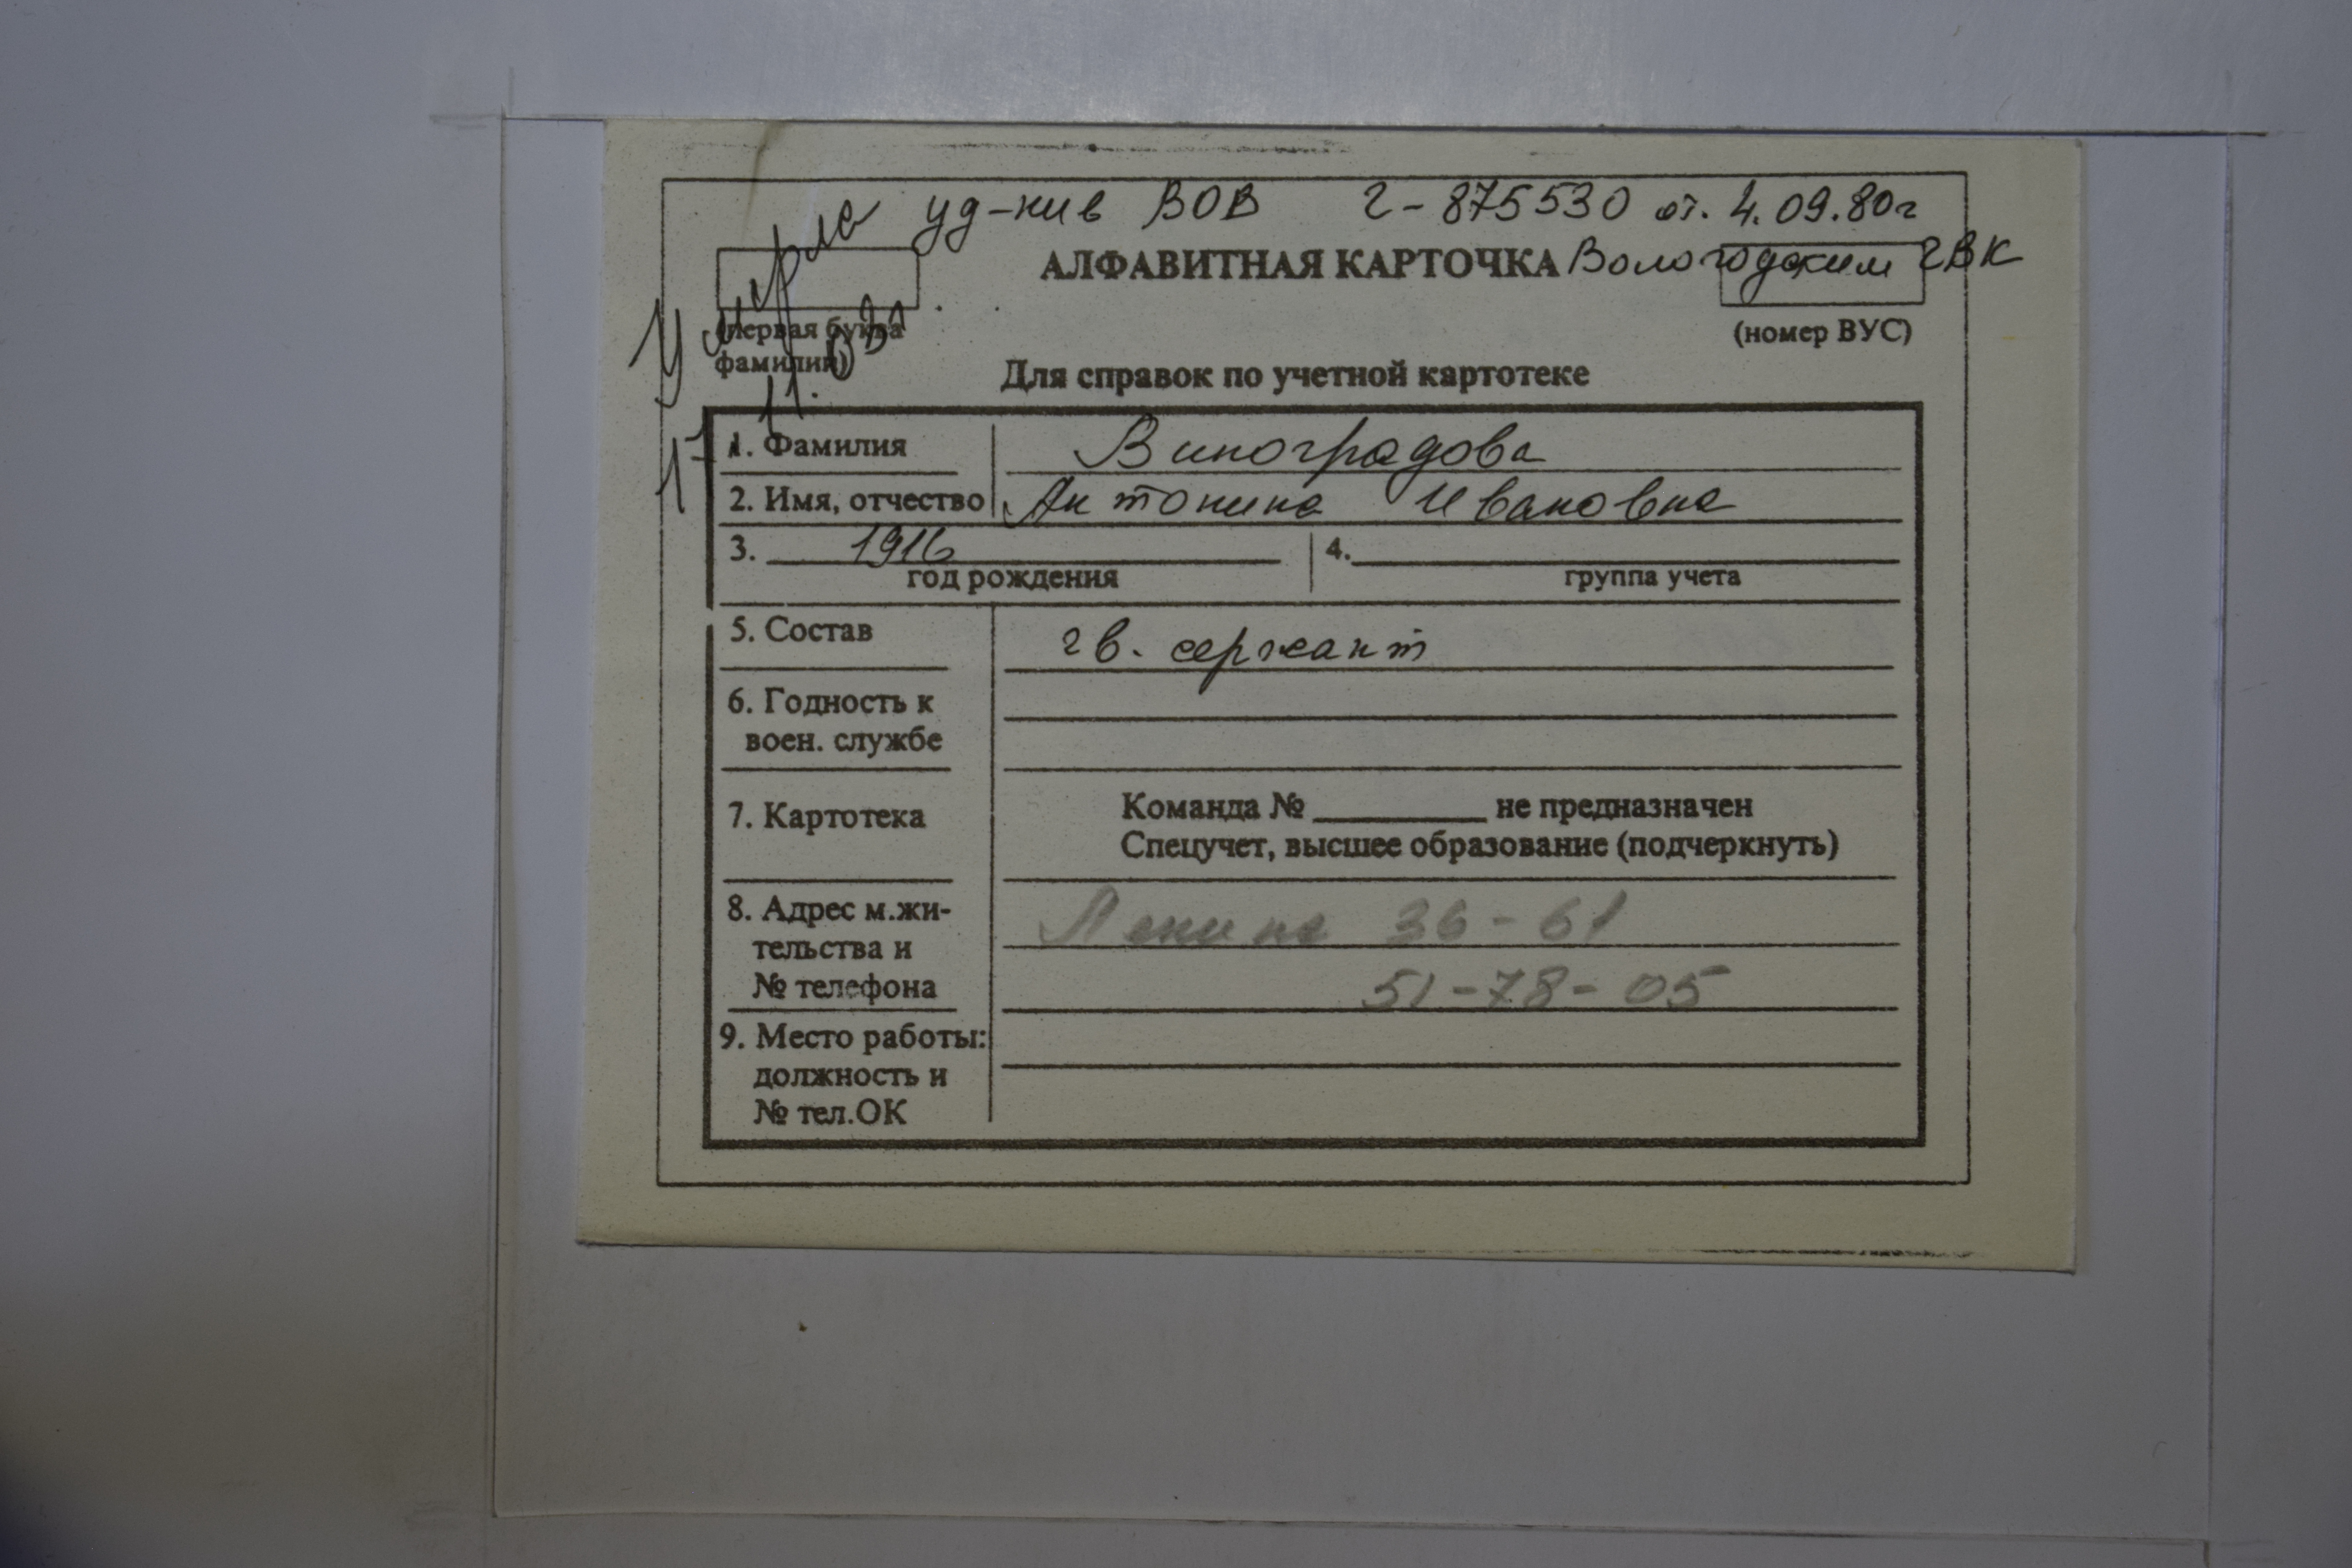 уд-ние ВОВ Г-875530 от. 4.09.80г
АЛФАВИТНАЯ КАРТОЧКА Вологодским ГВК
Умерла
(первая буква
фамилии)
(номер ВУС)
Для справок по учетной картотеке
1. Фамилия Виноградова
2. Имя, отчество Антонина Ивановна
3. 1916 4.
год рождения группа учета
5. Состав гв. сержант
6. Годность к
воен. службе
7. Картотека
Команда № не предназначен
Спецучет, высшее образование (подчеркнуть)
8. Адрес м.жи- Ленина 36-61
тельства и
№ телефона 51-78-05
9. Место работы:
должность и
№ тел.ОК